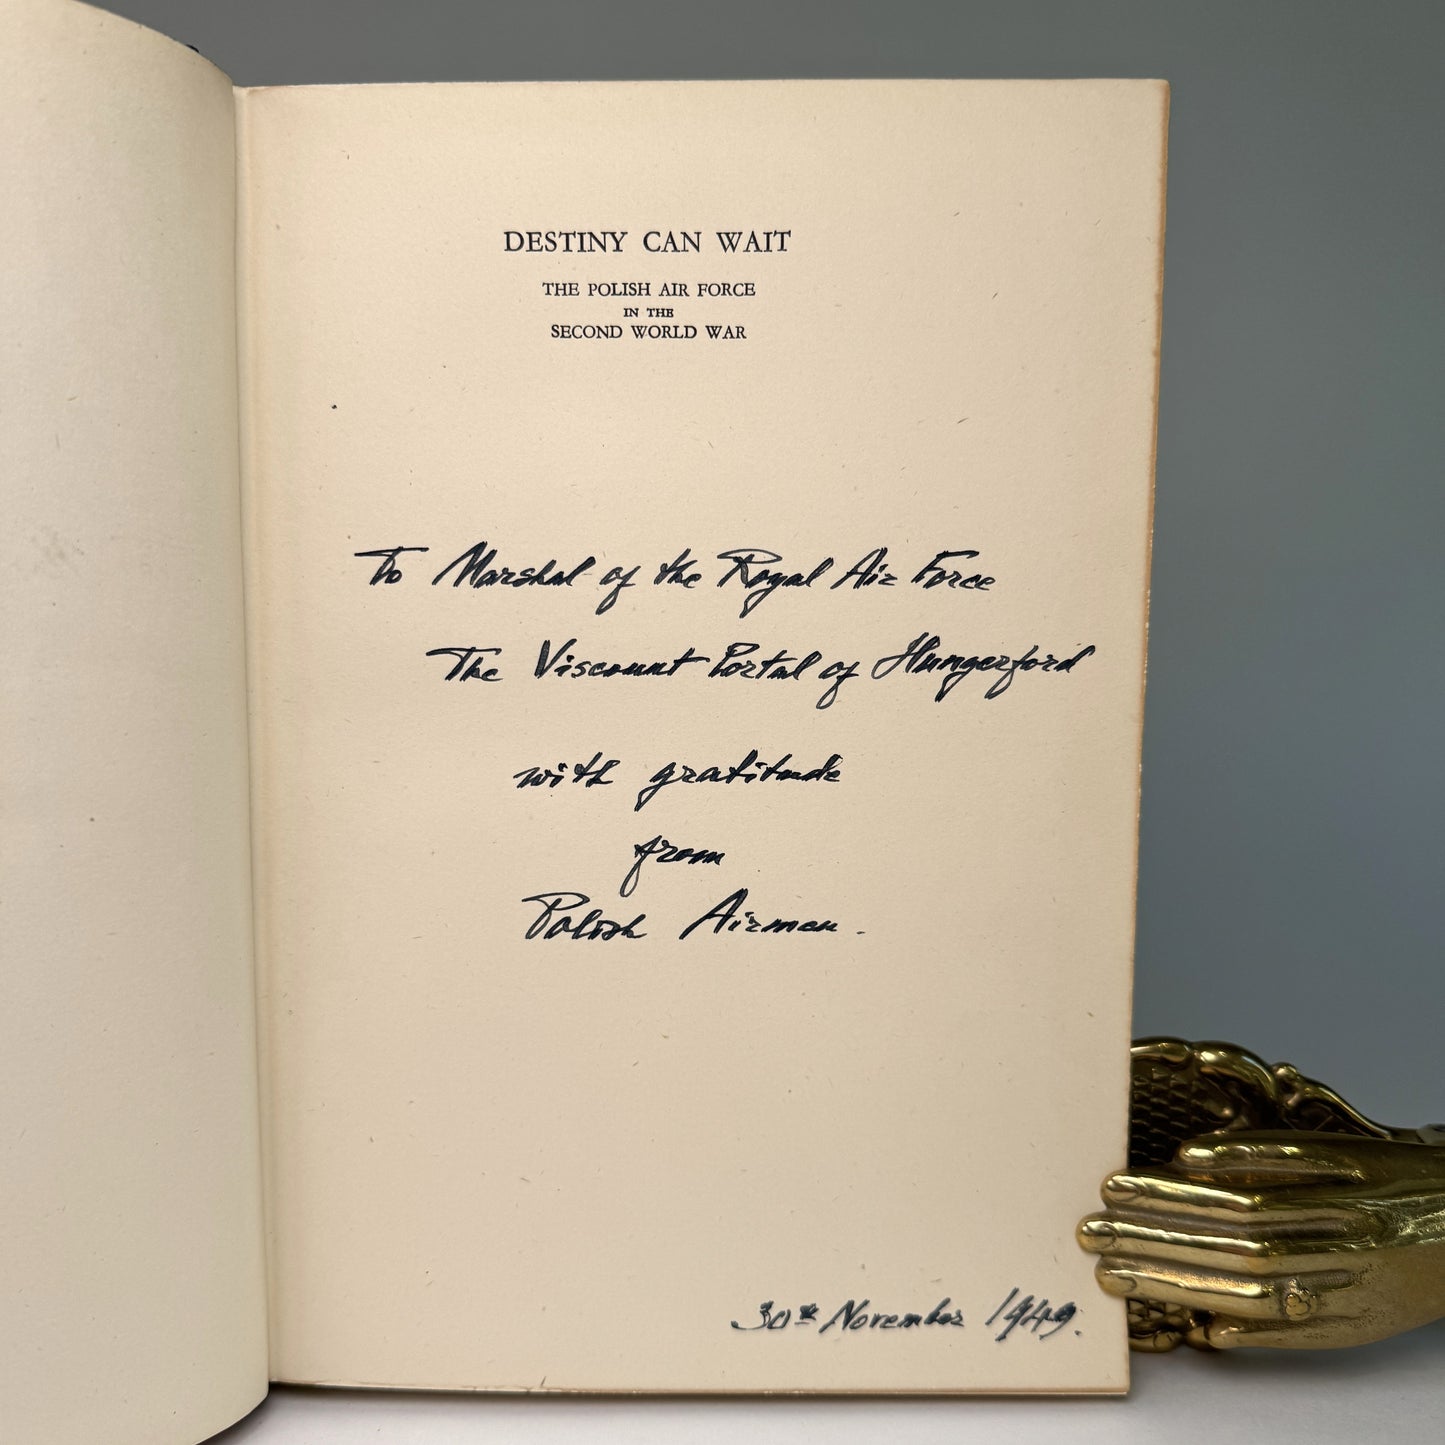 DESTINY CAN WAIT
THE POLISH AIR FORCE
IN THE
SECOND WORLD WAR
To Marshal of the Royal Air Force
The Viscount Portal of Hungerford
with gratitude
from
Polish Airmen.
30th November 1949.